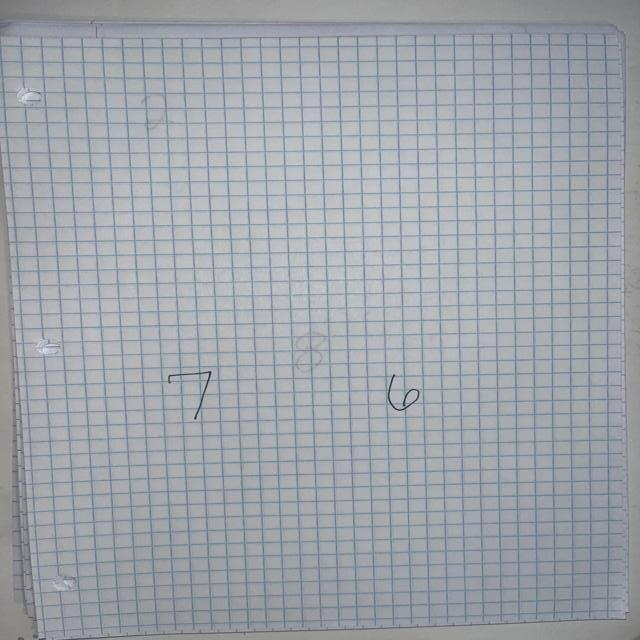 2
8
7 6